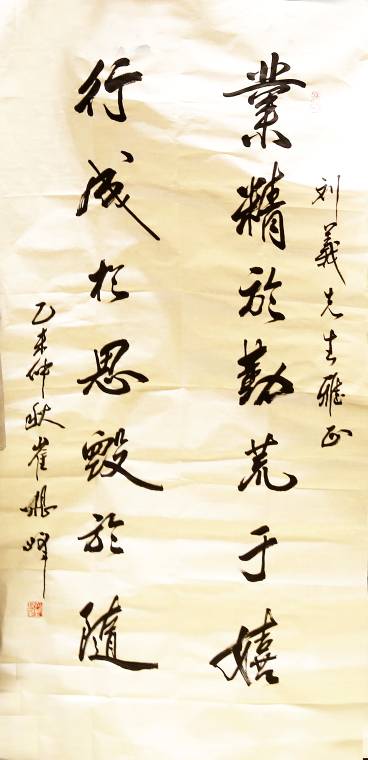 刘義先生雅正
業精於勤荒于嬉
行成於思毀於隨
乙未仲秋崔峰